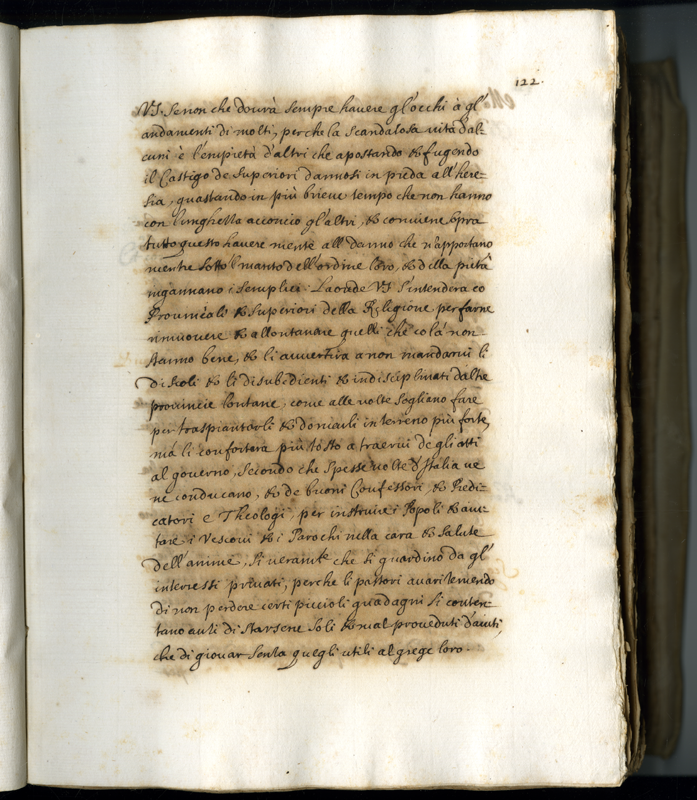 122.
VS. Se non che dourà sempre hauere gl'occhi à gl'
andamenti di molti, perche la scandalosa uita d'al-
cuni è l'empietà d'altri che apostando & fugendo
il Castigo de Superiori dannosi in preda all'here-
sia, guastando in più brieue tempo che non hanno
con l'unghetta acconcio gl'altri, & conuiene sopra
tutto questo hauere mente all danno che n'apportano
mentre sotto 'l manto dell'ordine loro, & della pietà
ingannano i semplici. Laonde VS s'intenderà co
Prouinciali & Superiori della Religione per farne
rimuouere & allontanare quelli che colà non
stanno bene, & li auuertirà a non mandarui li
discoli & li disubidienti & indisciplinati dalle
prouincie lontane, come alle uolte sogliano fare
per traspiantarli & domarli in terreno più forte,
mà li confortarà più tosto a traerui de gli atti
al gouerno, secondo che spesse uolte d'Italia ue
ne conducano, & de buoni Confessori, & Predi-
catori e Theologi, per instruire i Popoli & aiu-
tare i Vescoui & i Parochi nella cura & salute
dell'anime, Si ueram.te che si guardino da gl'
interessi priuati, perche li pastori auari temendo
di non perdere certi piccioli guadagni si conten-
tano anzi di starsene soli & mal proueduti d'aiuti,
che di giouar senza quegli utili al grege loro.